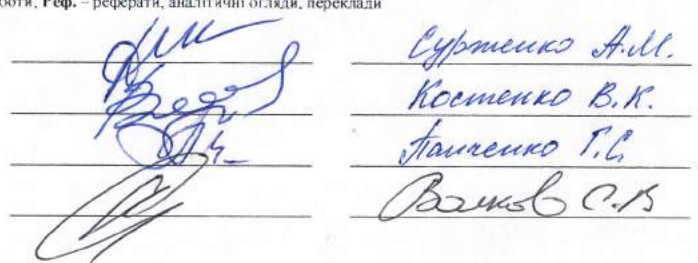 боти, Реф. – реферати, аналітичні огляди, переклади
Сурженко А.М.
Костенко В.К.
Панченко Г.С.
Волков С.В